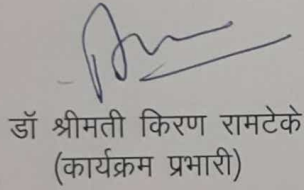 डॉ श्रीमती किरण रामटेके
(कार्यक्रम प्रभारी)